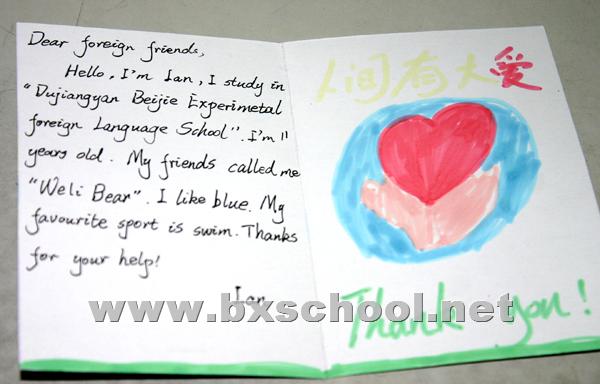 Dear foreign friends,
Hello, I'm Ian, I study in
"Dujiangyan Beijie Experimetal
foreign Language School". I'm 11
years old. My friends called me
"Weli Bear". I like blue. My
favourite sport is swim. Thanks
for your help!
Ian
人间有大爱
Thank you!
www.bxschool.net